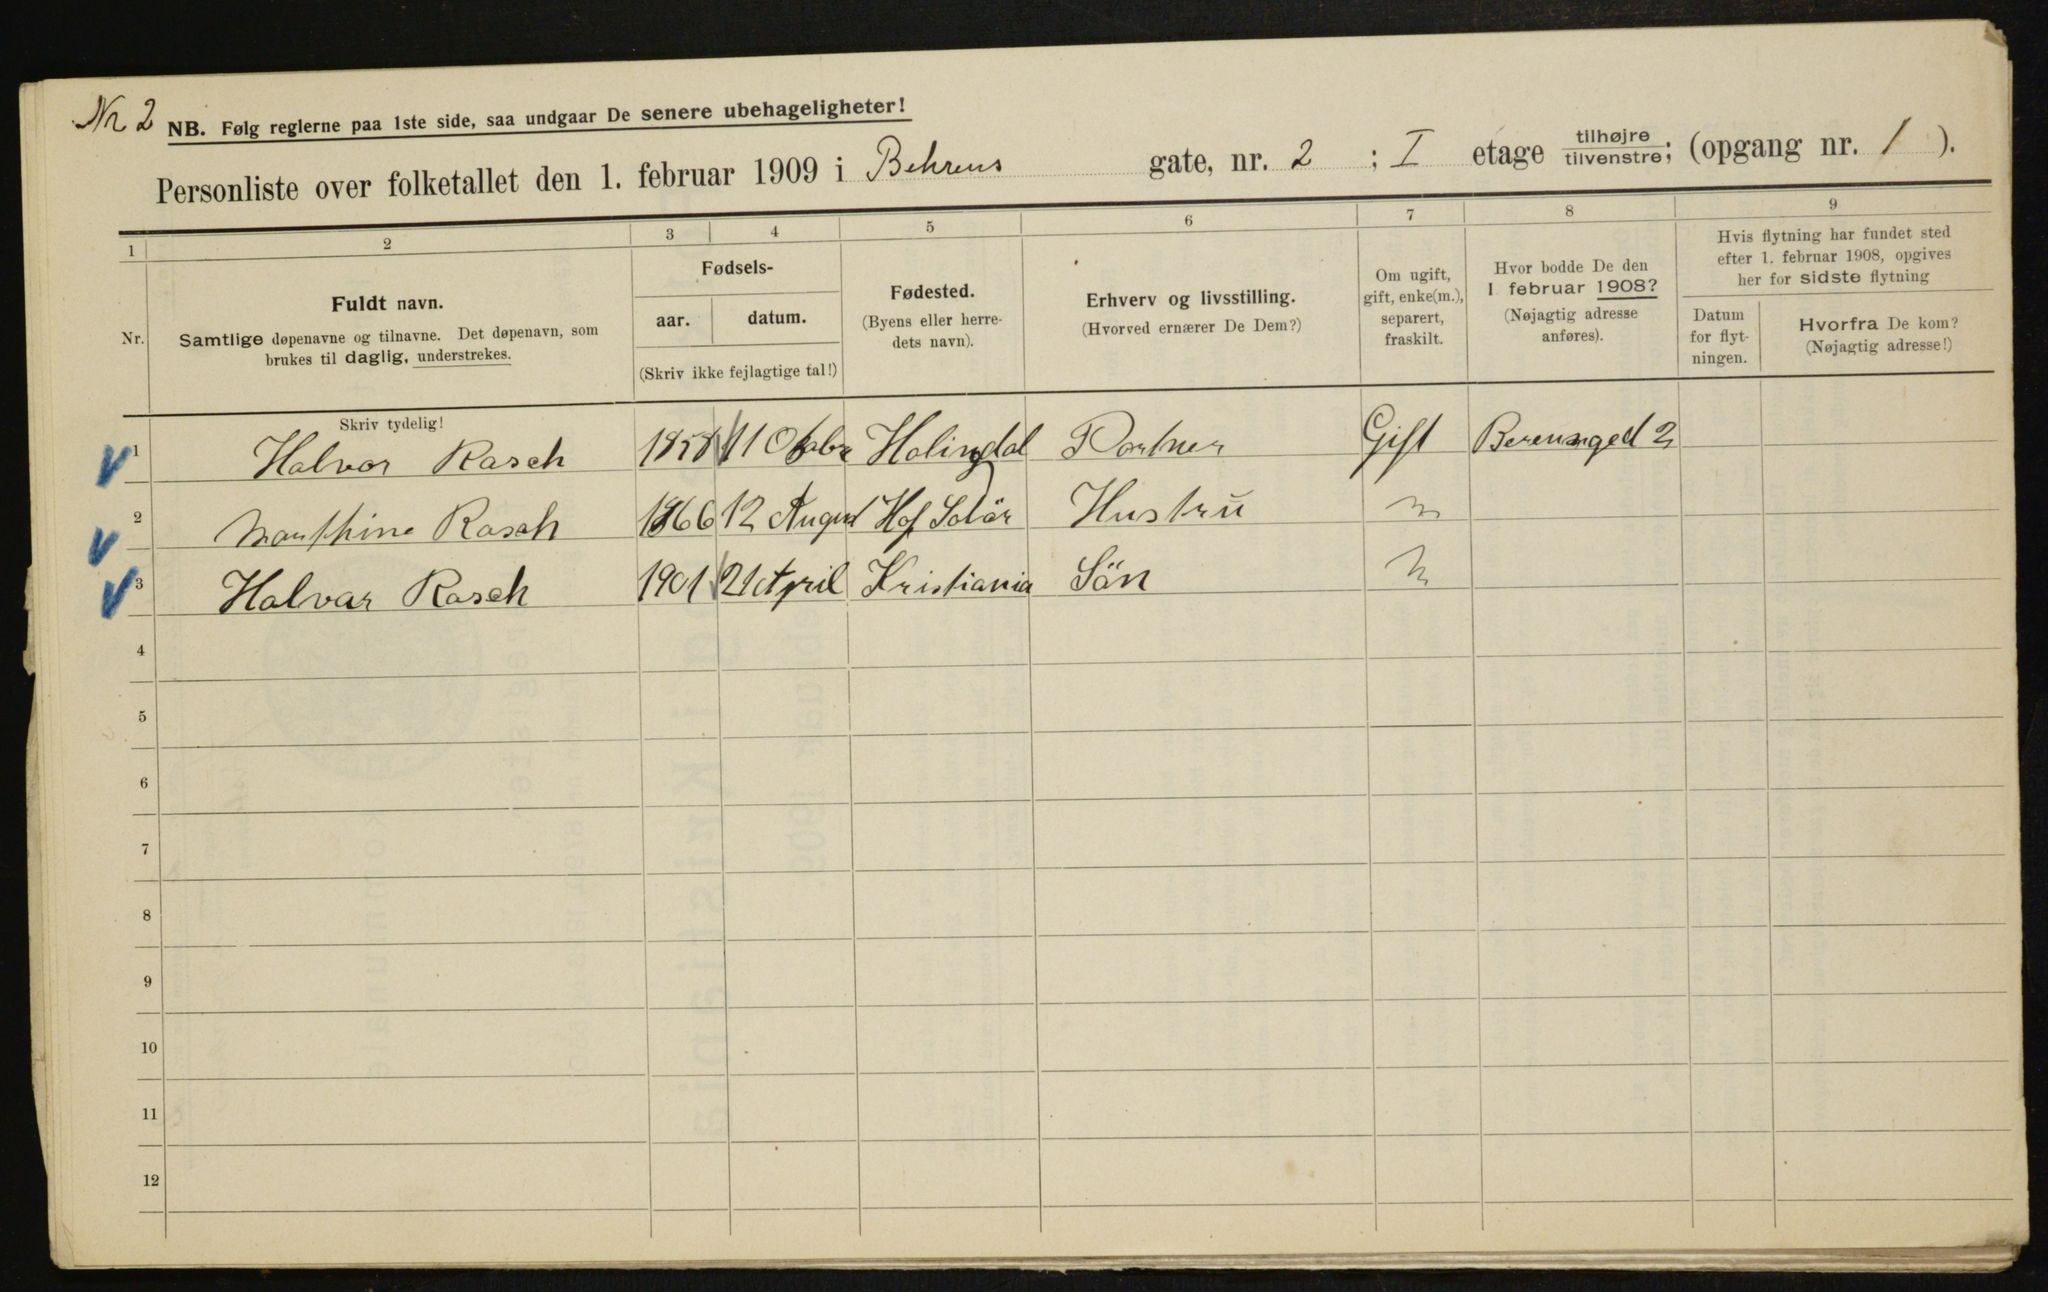 Nr 2
NB. Følg reglerne paa 1ste side, saa undgaar De senere ubehageligheter!
Personliste over folketallet den 1. februar 1909 i Behrens gate, nr. 2 ; I etage tilhøjre/tilvenstre; (opgang nr. 1 ).
1 2 3 4 5 6 7 8 9
Nr.
Fuldt navn.
Samtlige døpenavne og tilnavne. Det døpenavn, som
brukes til daglig, understrekes.
Fødsels-
aar. datum.
(Skriv ikke fejlagtige tal!)
Fødested.
(Byens eller herre-
dets navn).
Erhverv og livsstilling.
(Hvorved ernærer De Dem?)
Om ugift,
gift, enke(m.),
separert,
fraskilt.
Hvor bodde De den
1 februar 1908?
(Nøjagtig adresse
anføres).
Hvis flytning har fundet sted
efter 1. februar 1908, opgives
her for sidste flytning
Datum
for flyt-
ningen.
Hvorfra De kom?
(Nøjagtig adresse!)
Skriv tydelig!
1 Halvor Rasch 1858 11 Halingdal Portner Gift 2
2 Marthine Rasch 1866 12 August Hof Solör Hustru
3 Halvar Rasch 1901 21 April Kristiania Sön
4
5
6
7
8
9
10
11
12